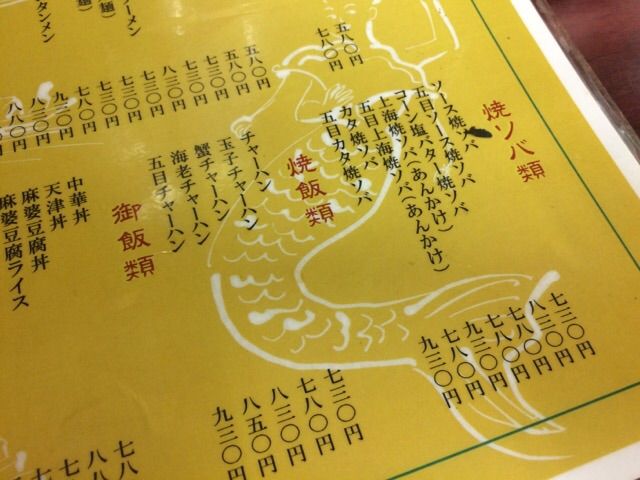 五八〇円
七八〇円
五八〇円
五八〇円
七八〇円
八三〇円
七三〇円
七三〇円
七八〇円
九三〇円
八三〇円
八八〇円
ーメン
タンメン
焼ソバ類
ソース焼ソバ 七三〇円
五目ソース焼ソバ 八三〇円
コーン塩バター焼ソバ 七八〇円
上海焼ソバ(あんかけ) 七八〇円
五目上海焼ソバ(あんかけ) 九三〇円
カタ焼ソバ 七八〇円
五目カタ焼ソバ 九三〇円
焼飯類
チャーハン 七三〇円
玉子チャーハン 七八〇円
蟹チャーハン 八三〇円
海老チャーハン 八五〇円
五目チャーハン 九三〇円
御飯類
中華丼 七八
天津丼 八
麻婆豆腐丼 七
麻婆豆腐ライス